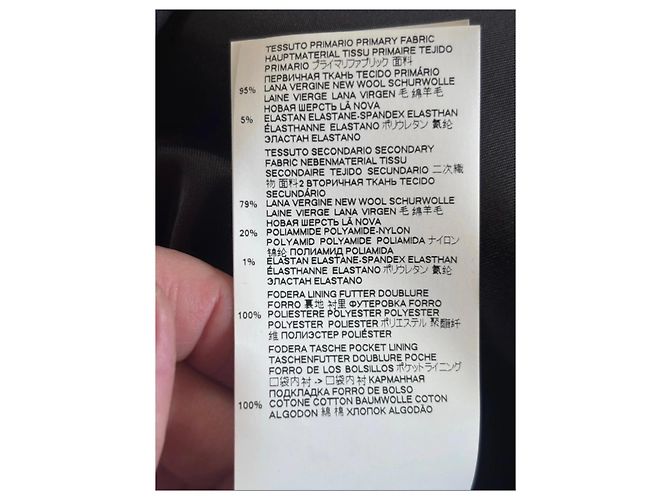 TESSUTO PRIMARIO PRIMARY FABRIC
HAUPTMATERIAL TISSU PRIMAIRE TEJIDO
PRIMARIO プライマリファブリック 面料
ПЕРВИЧНАЯ ТКАНЬ TECIDO PRIMÁRIO
95% LANA VERGINE NEW WOOL SCHURWOLLE
LAINE VIERGE LANA VIRGEN 毛 綿羊毛
НОВАЯ ШЕРСТЬ LÃ NOVA
5% ELASTAN ELASTANE-SPANDEX ELASTHAN
ÉLASTHANNE ELASTANO ポリウレタン 氨纶
ЭЛАСТАН ELASTANO
TESSUTO SECONDARIO SECONDARY
FABRIC NEBENMATERIAL TISSU
SECONDAIRE TEJIDO SECUNDARIO 二次織
物 面料2 ВТОРИЧНАЯ ТКАНЬ TECIDO
SECUNDÁRIO
79% LANA VERGINE NEW WOOL SCHURWOLLE
LAINE VIERGE LANA VIRGEN 毛 綿羊毛
НОВАЯ ШЕРСТЬ LÃ NOVA
20% POLIAMMIDE POLYAMIDE-NYLON
POLYAMID POLYAMIDE POLIAMIDA ナイロン
锦纶 ПОЛИАМИД POLIAMIDA
1% ELASTAN ELASTANE-SPANDEX ELASTHAN
ÉLASTHANNE ELASTANO ポリウレタン 氨纶
ЭЛАСТАН ELASTANO
FODERA LINING FUTTER DOUBLURE
FORRO 裏地 衬里 ФУТЕРОВКА FORRO
100% POLIESTERE POLYESTER POLYESTER
POLYESTER POLIESTER ポリエステル 聚酯纤
维 ПОЛИЭСТЕР POLIÉSTER
FODERA TASCHE POCKET LINING
TASCHENFUTTER DOUBLURE POCHE
FORRO DE LOS BOLSILLOS ポケットライニング
口袋内衬 -> 口袋内衬 КАРМАННАЯ
ПОДКЛАДКА FORRO DE BOLSO
100% COTONE COTTON BAUMWOLLE COTON
ALGODON 綿 棉 ХЛОПОК ALGODÃO